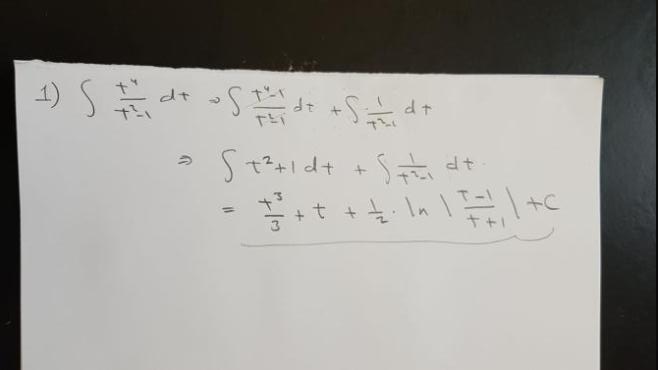 1) ∫ t⁴/(t²-1) dt ⇒ ∫ (t⁴-1)/(t²-1) dt + ∫ 1/(t²-1) dt
⇒ ∫ t²+1 dt + ∫ 1/(t²-1) dt
= t³/3 + t + 1/2 · ln |(t-1)/(t+1)| + C